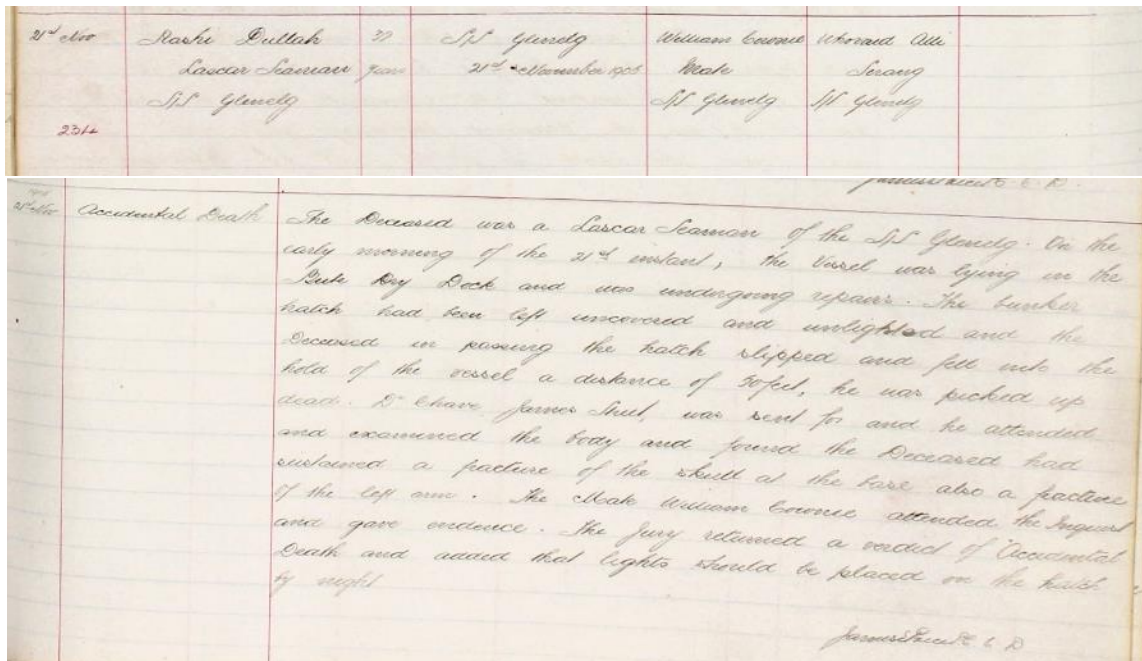 21st Nov Rashi Dullah 30 S/S Glenelg William Cownie Whoraid Alli
Lascar Seaman Years 21st November 1905 Mate Serang
S/S Glenelg S/S Glenelg S/S Glenelg
234
C. D.
21st Nov Accidental Death The Deceased was a Lascar Seaman of the S/S Glenelg. On the
early morning of the 21st instant, the Vessel was lying in the
Bute Dry Dock and was undergoing repairs. The bunker
hatch had been left uncovered and unlighted and the
Deceased in passing the hatch slipped and fell into the
hold of the vessel a distance of 30 feet, he was picked up
dead. Dr Chave, James Street, was sent for and he attended
and examined the body and found the Deceased had
sustained a fracture of the skull at the base also a fracture
of the left arm. The Mate William Cownie attended the Inquest
and gave evidence. The Jury returned a verdict of "Accidental
Death and added that lights should be placed on the hatch
by night
C D